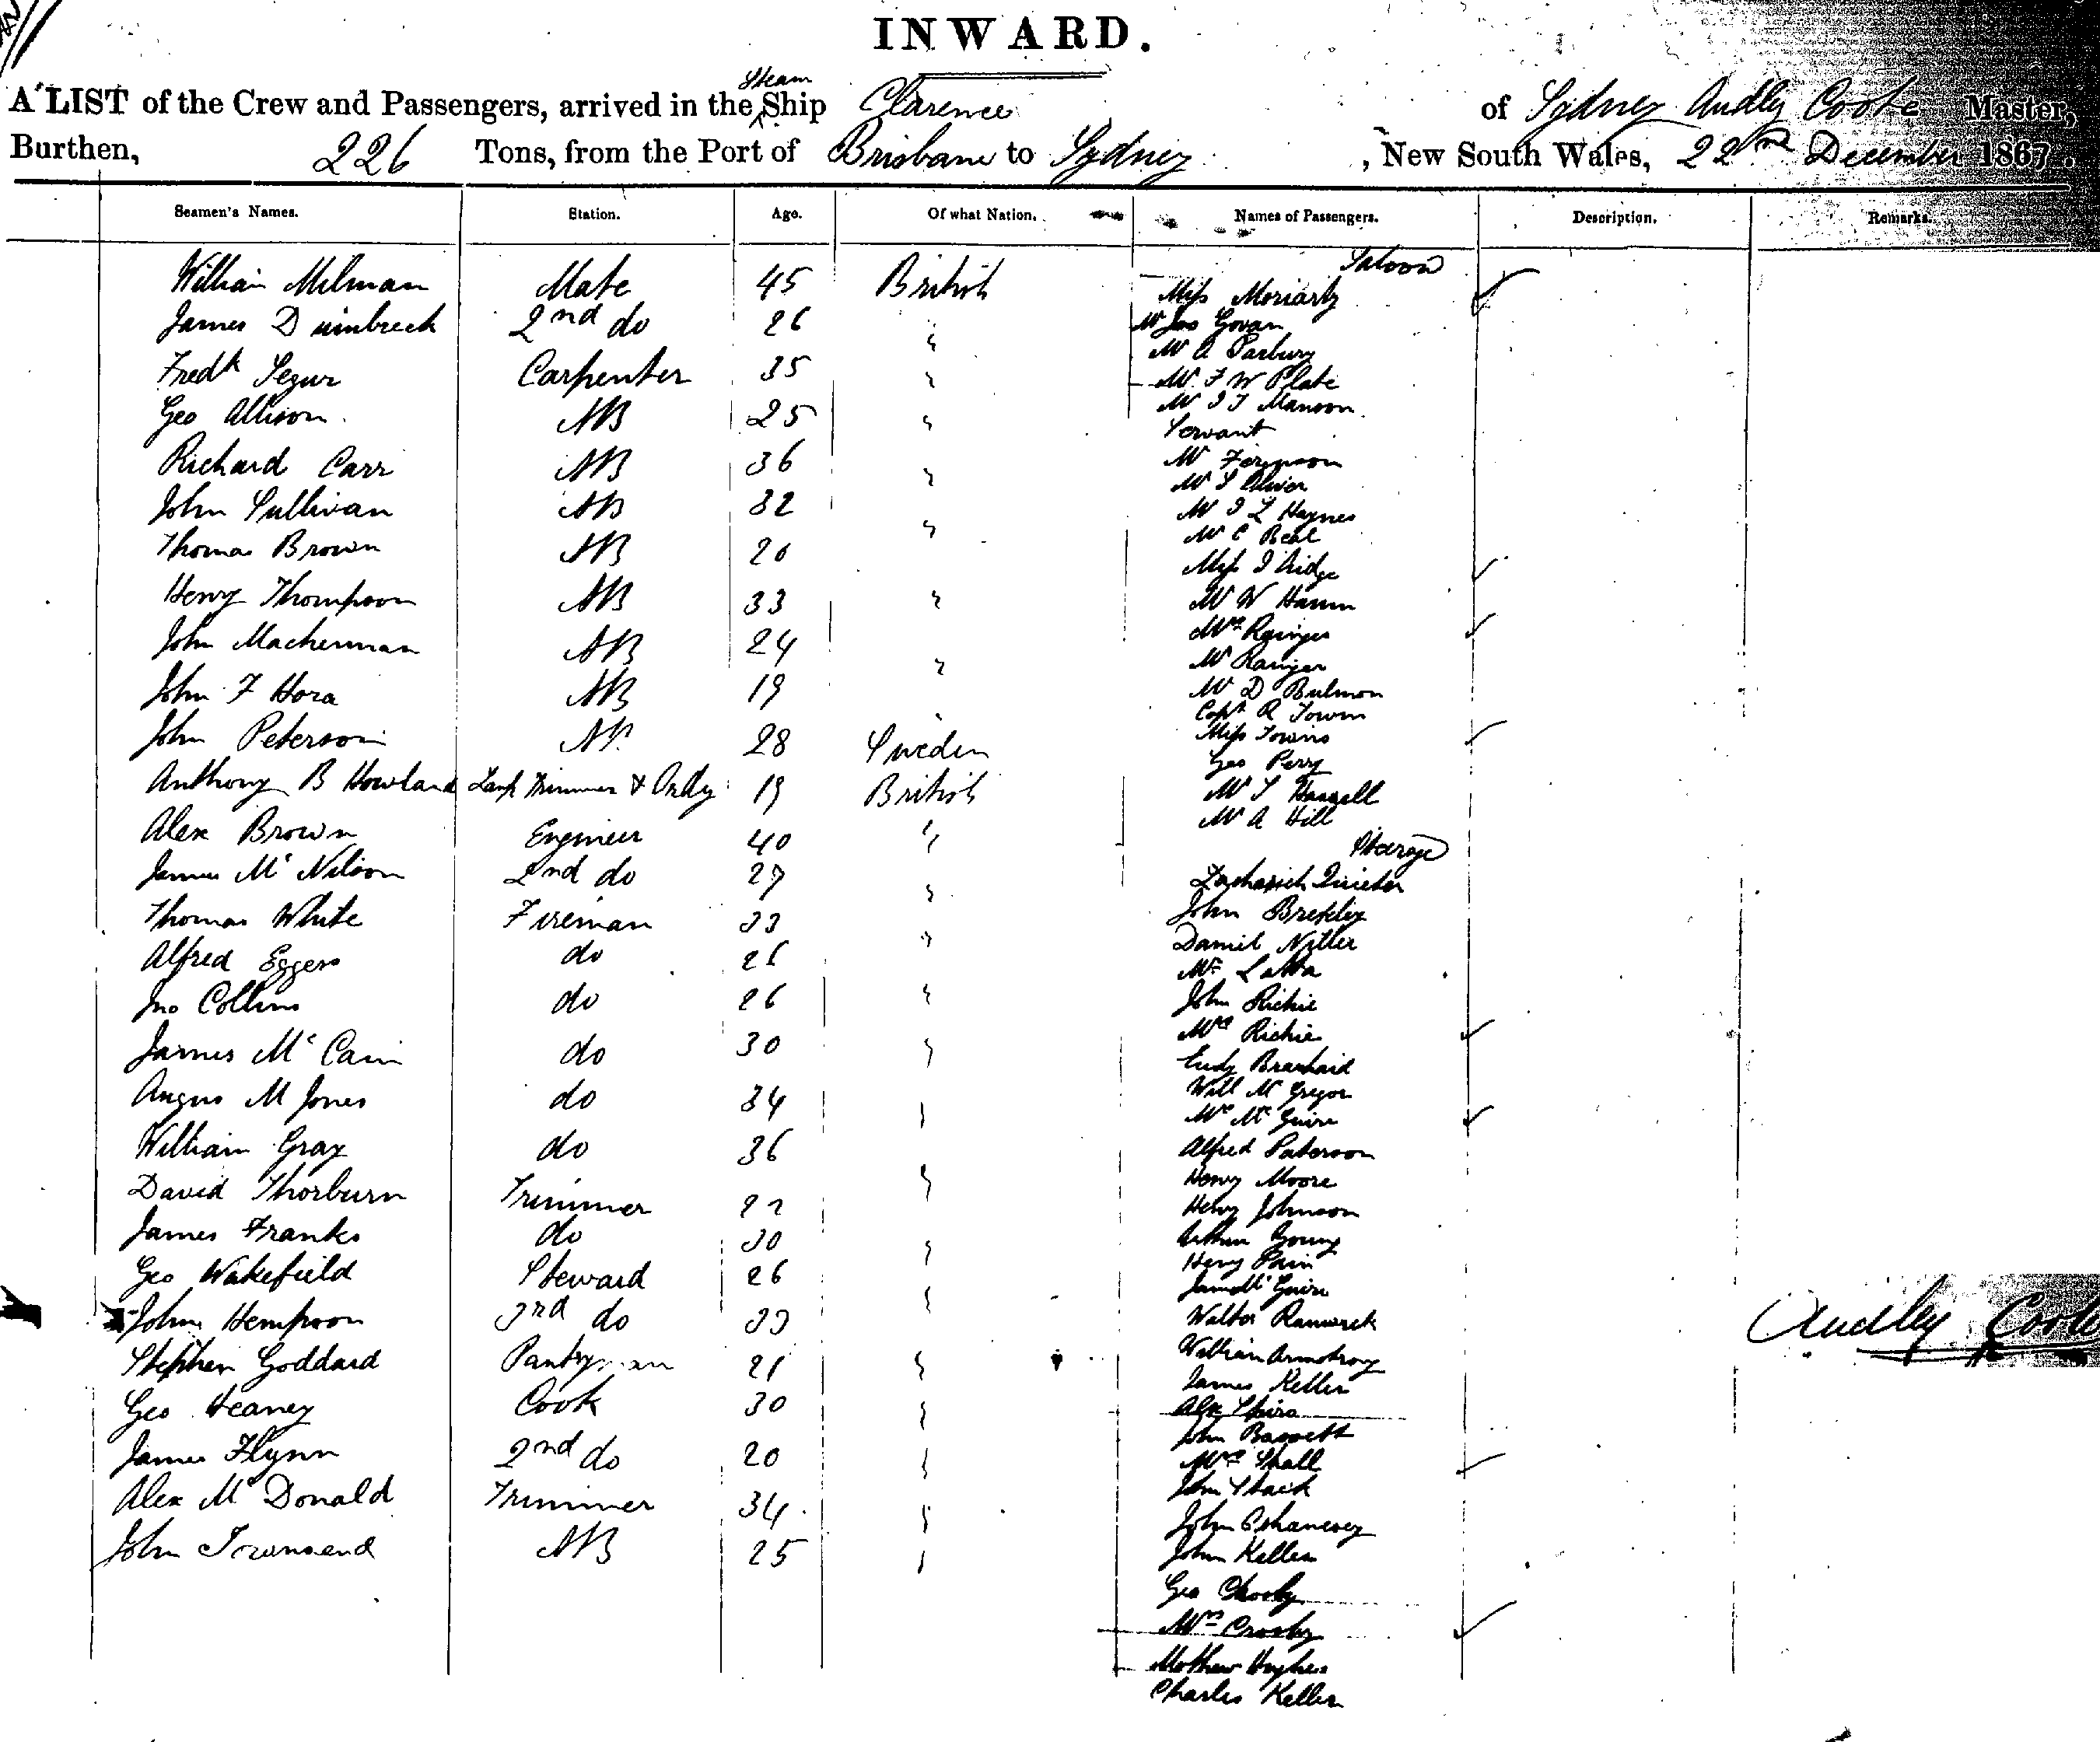 INWARD.
A LIST of the Crew and Passengers, arrived in the Steam Ship Clarence of Sydney Audley Coote Master,
Burthen, 226 Tons, from the Port of Brisbane to Sydney, New South Wales, 22nd December 1867.
Seamen's Names. Station. Age. Of what Nation. Names of Passengers. Description. Remarks.
Saloon
William Milman Mate 45 British Miss Moriarty
James Dumbreck 2nd do 26 " Mr Jas Govan
Mr A Parbury
Fredk Segur Carpenter 35 " Mr F W Plate
Geo Allison AB 25 " Mr J T Manson
Servant
Richard Carr AB 36 " Mr Ferguson
Mr S Oliver
John Sullivan AB 32 " Mr J L Haynes
Mr C Beal
Thomas Brown AB 26 Miss J
Henry Thompson AB 33 " Mr W
Mrs Ranger
John Macherman AB 24 " Mr Ranger
John F Hora AB 19 Mr D Bulmon
Capt R Towns
John Peterson AB 28 Sweden Miss Towns
Geo Perry
Anthony B Howland Lamp Trimmer & 19 British Mr T Hassell
Mr A Hill
Alex Brown Engineer 40 " Steerage
James Mc Nilson 2nd do 27 " Zachariah
Thomas White Fireman 33 John
Daniel
Alfred Eggers do 26 " Mr Latta
Jno Collins do 26 " John Richie
Mrs Richie
James Mc Cain do 30 "
Will Mc Gregor
Angus M Jones do 34 " Mrs Mc Guire
William Gray do 36 Alfred Paterson
Henry Moore
David Thorburn Trimmer 22 " Henry Johnson
James Franks do 30 " Arthur Young
Henry Pain
Geo Wakefield Steward 26 " Guire
John Hempson 3rd do 33 Walter Audley Coote
Stephen Goddard Pantryman 21 " William Armstrong
James Keller
Geo Heaney Cook 30 " Alex Spiro
John Bassett
James Flynn 2nd do 20 " Mrs Small
John Stack
Alex Mc Donald Trimmer 34 " John Oshanesey
John Townsend AB 25 " John Keller
Geo Crosby
Mrs Crosby
Mathew Hughes
Charles Keller